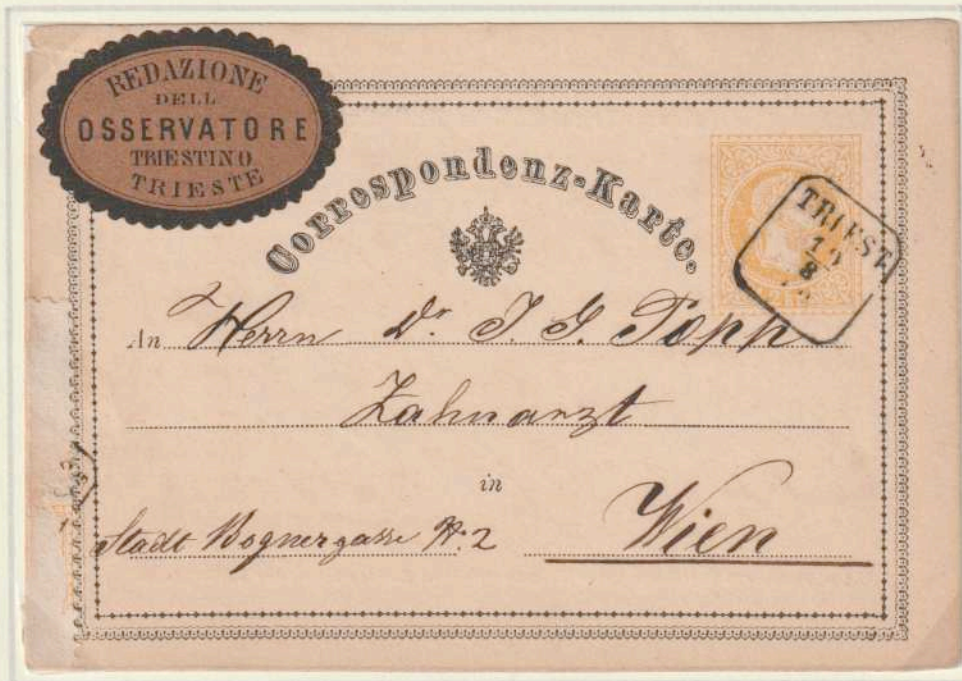 REDAZIONE
DELL
OSSERVATORE
TRIESTINO
TRIESTE
Correspondenz-Karte.
TRIEST
10
8
An Herrn Dr. J. G. Popp
Zahnarzt
in
Stadt Bognergasse N: 2 Wien